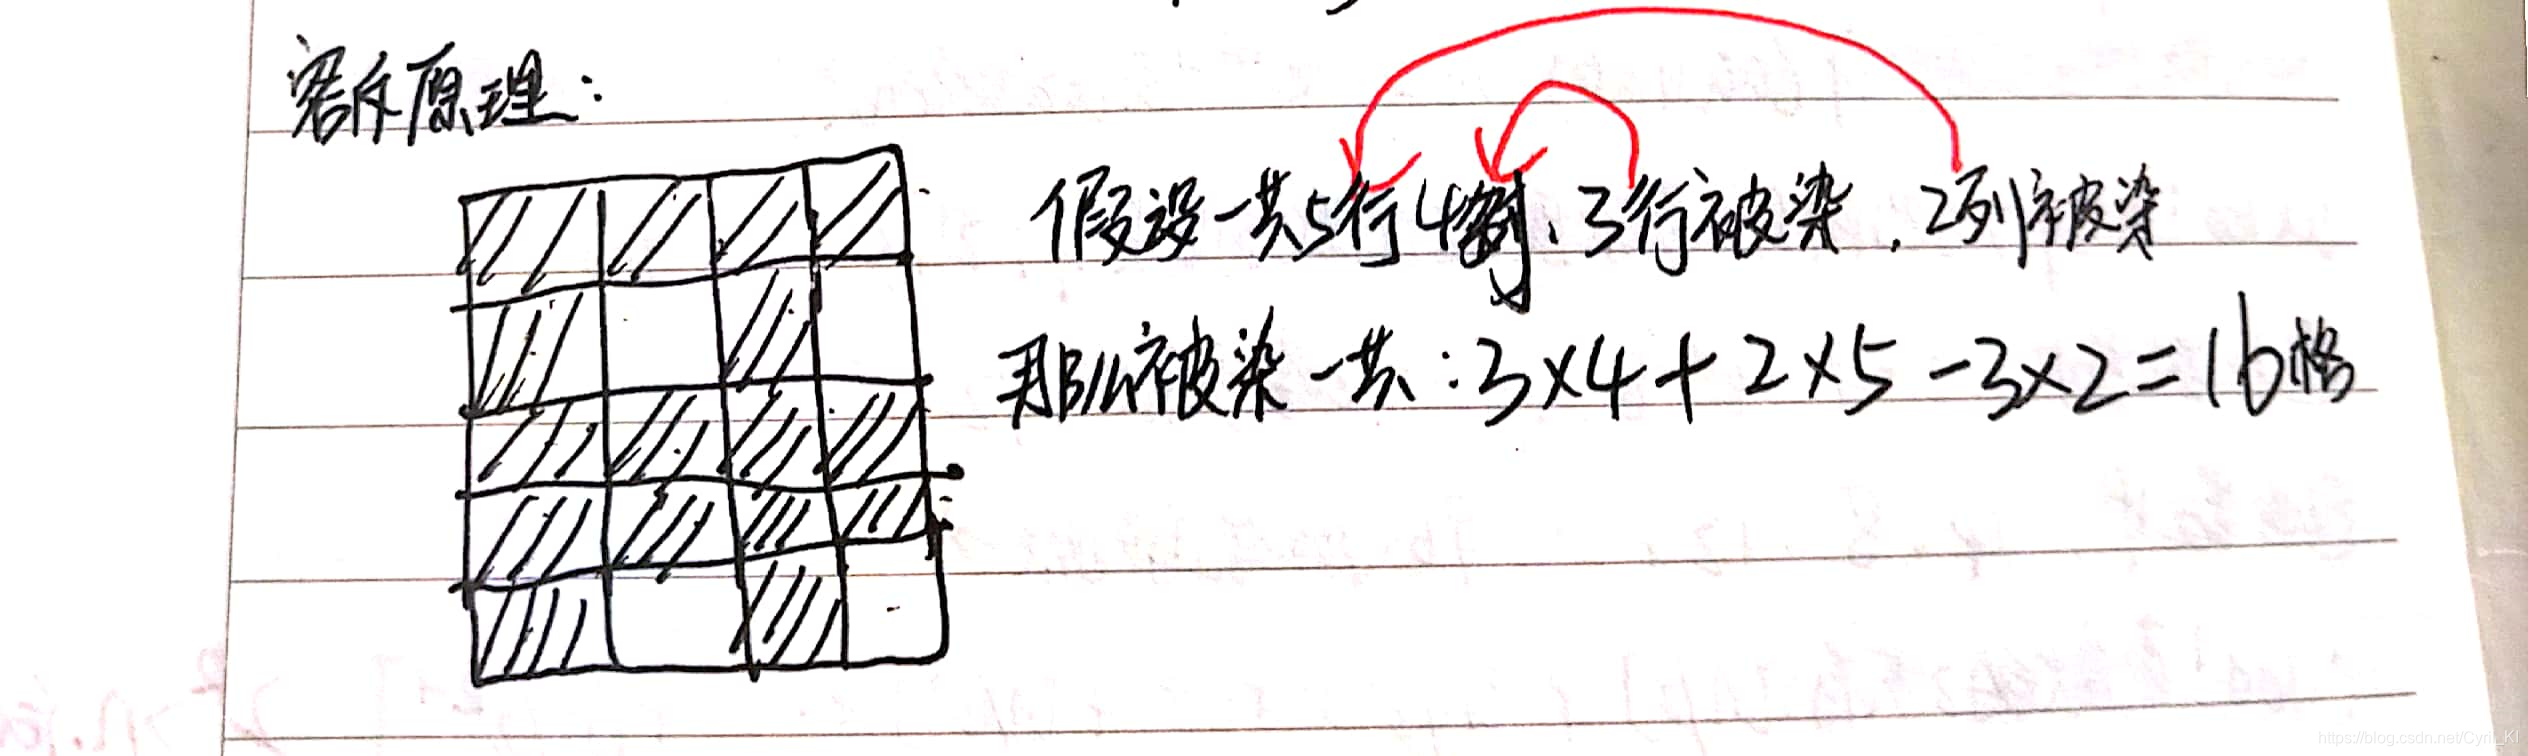 容斥原理：
假设一共5行4列，3行被染，2列被染
那么被染一共：3×4+2×5-3×2=16格
https://blog.csdn.net/Cyril_KI